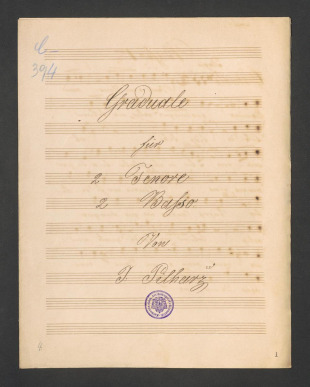 394
Graduale
für
2 Tenore
2 Basso
Von
J Pilharz
4
1